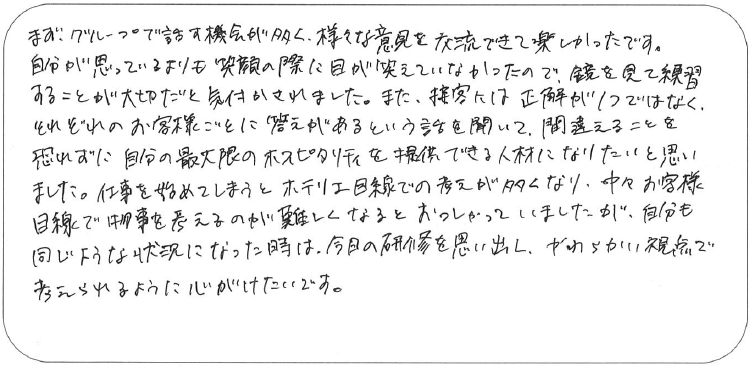 まず、グループで話す機会が多く、様々な意見を交流できて楽しかったです。
自分が思っているよりも笑顔の際に目が笑えていなかったので、鏡を見て練習
することが大切だと気付かされました。また、接客には正解が1つではなく、
それぞれのお客様ごとに答えがあるという話を聞いて、間違えることを
恐れずに自分の最大限のホスピタリティを提供できる人材になりたいと思い
ました。仕事を始めてしまうとホテリエ目線での考えが多くなり、中々お客様
目線で物事を考えるのが難しくなるとおっしゃっていましたが、自分も
同じような状況になった時は、今日の研修を思い出し、やわらかい視点で
考えられるように心がけたいです。